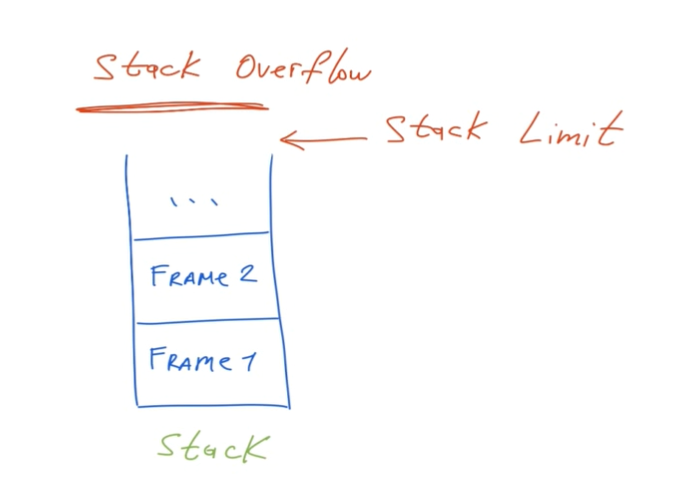 Stack Overflow
Stack Limit
...
FRAMe 2
FRAMe 1
Stack